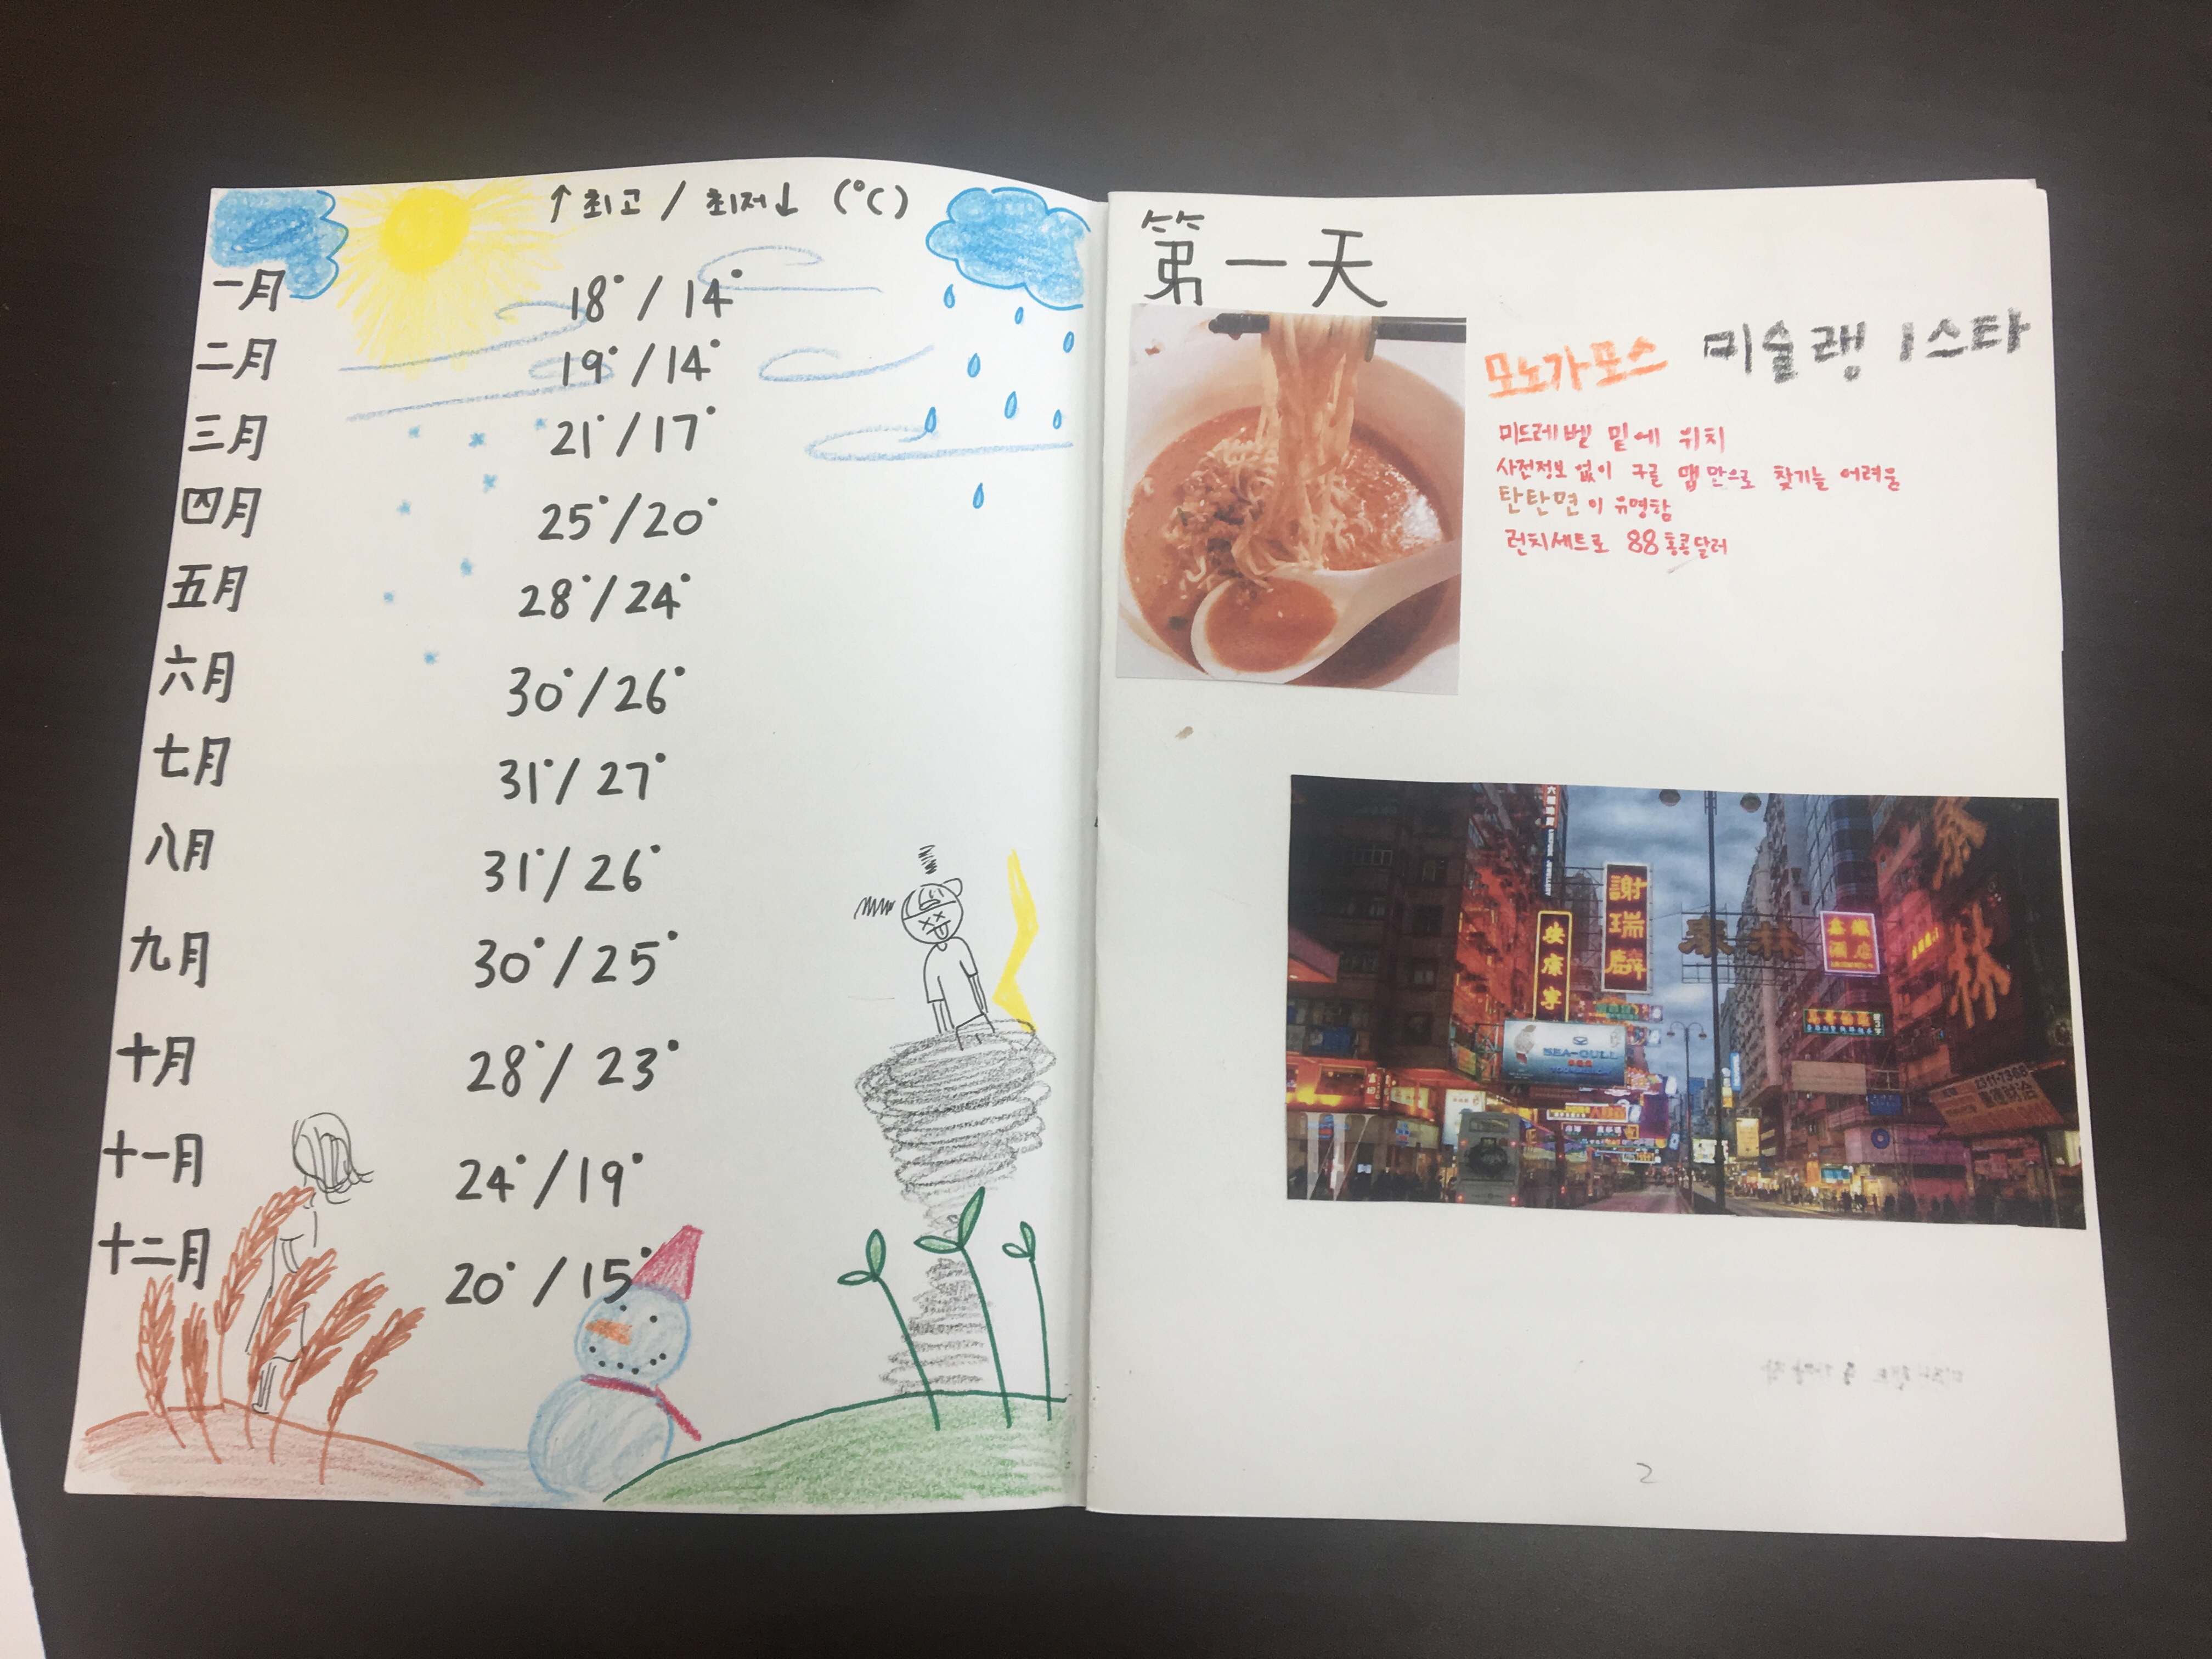 ↑최고 / 최저↓ (°C)
一月 18° / 14°
二月 19° / 14°
三月 21° / 17°
四月 25° / 20°
五月 28° / 24°
六月 30° / 26°
七月 31° / 27°
八月 31° / 26°
九月 30° / 25°
十月 28° / 23°
十一月 24° / 19°
十二月 20° / 15°
第一天
모노가포스 미슐랭 1스타
미드레벨 밑에 위치
사전정보 없이 구글 맵만으로 찾기는 어려움
탄탄면이 유명함
런치세트로 88홍콩달러
謝瑞麟
安康寧
泰林
泰林
SEA-GULL
2